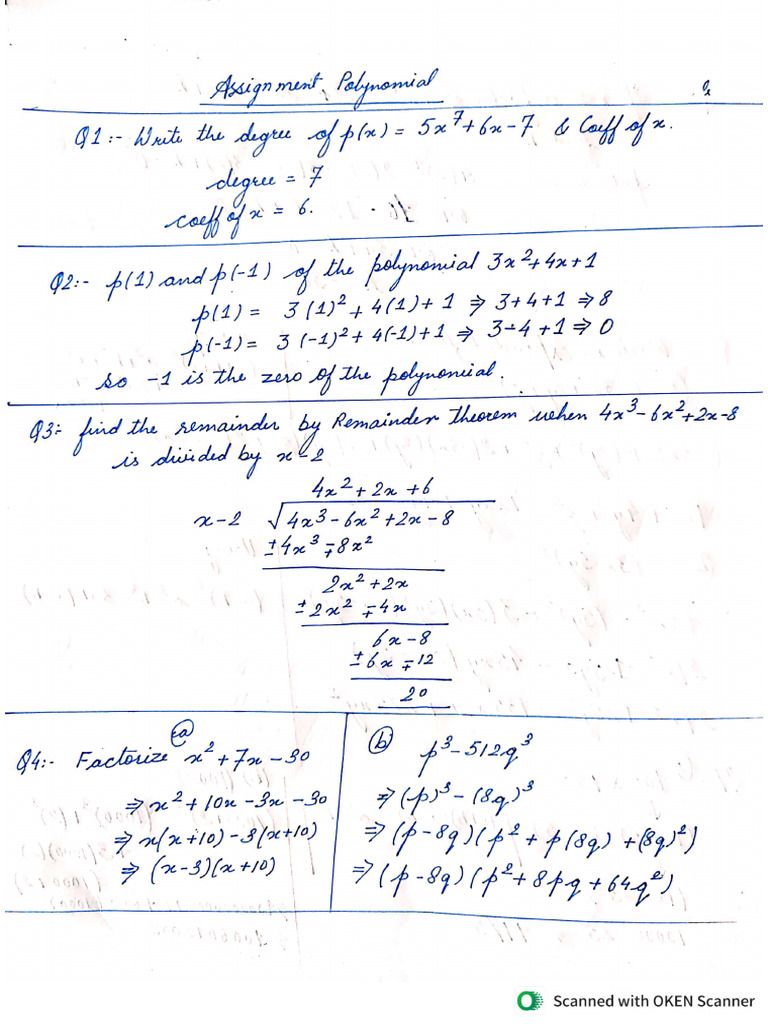 Assignment, Polynomial
Q1:- Write the degree of p(x) = 5x⁷+6x-7 & Coeff of x.
degree = 7
coeff of x = 6.
Q2:- p(1) and p(-1) of the polynomial 3x²+4x+1
p(1) = 3(1)²+4(1)+1 ⇒ 3+4+1 ⇒ 8
p(-1) = 3(-1)²+4(-1)+1 ⇒ 3-4+1 ⇒ 0
so -1 is the zero of the polynomial.
Q3:- find the remainder by Remainder theorem when 4x³-6x²+2x-8
is divided by x-2
4x²+2x+6
x-2 √4x³-6x²+2x-8
±4x³∓8x²
2x²+2x
±2x²∓4x
6x-8
±6x∓12
20
Q4:- Factorize (a) x²+7x-30
⇒ x²+10x-3x-30
⇒ x(x+10)-3(x+10)
⇒ (x-3)(x+10)
(b) p³-512q³
⇒ (p)³-(8q)³
⇒ (p-8q)(p²+p(8q)+(8q)²)
⇒ (p-8q)(p²+8pq+64q²)
Scanned with OKEN Scanner